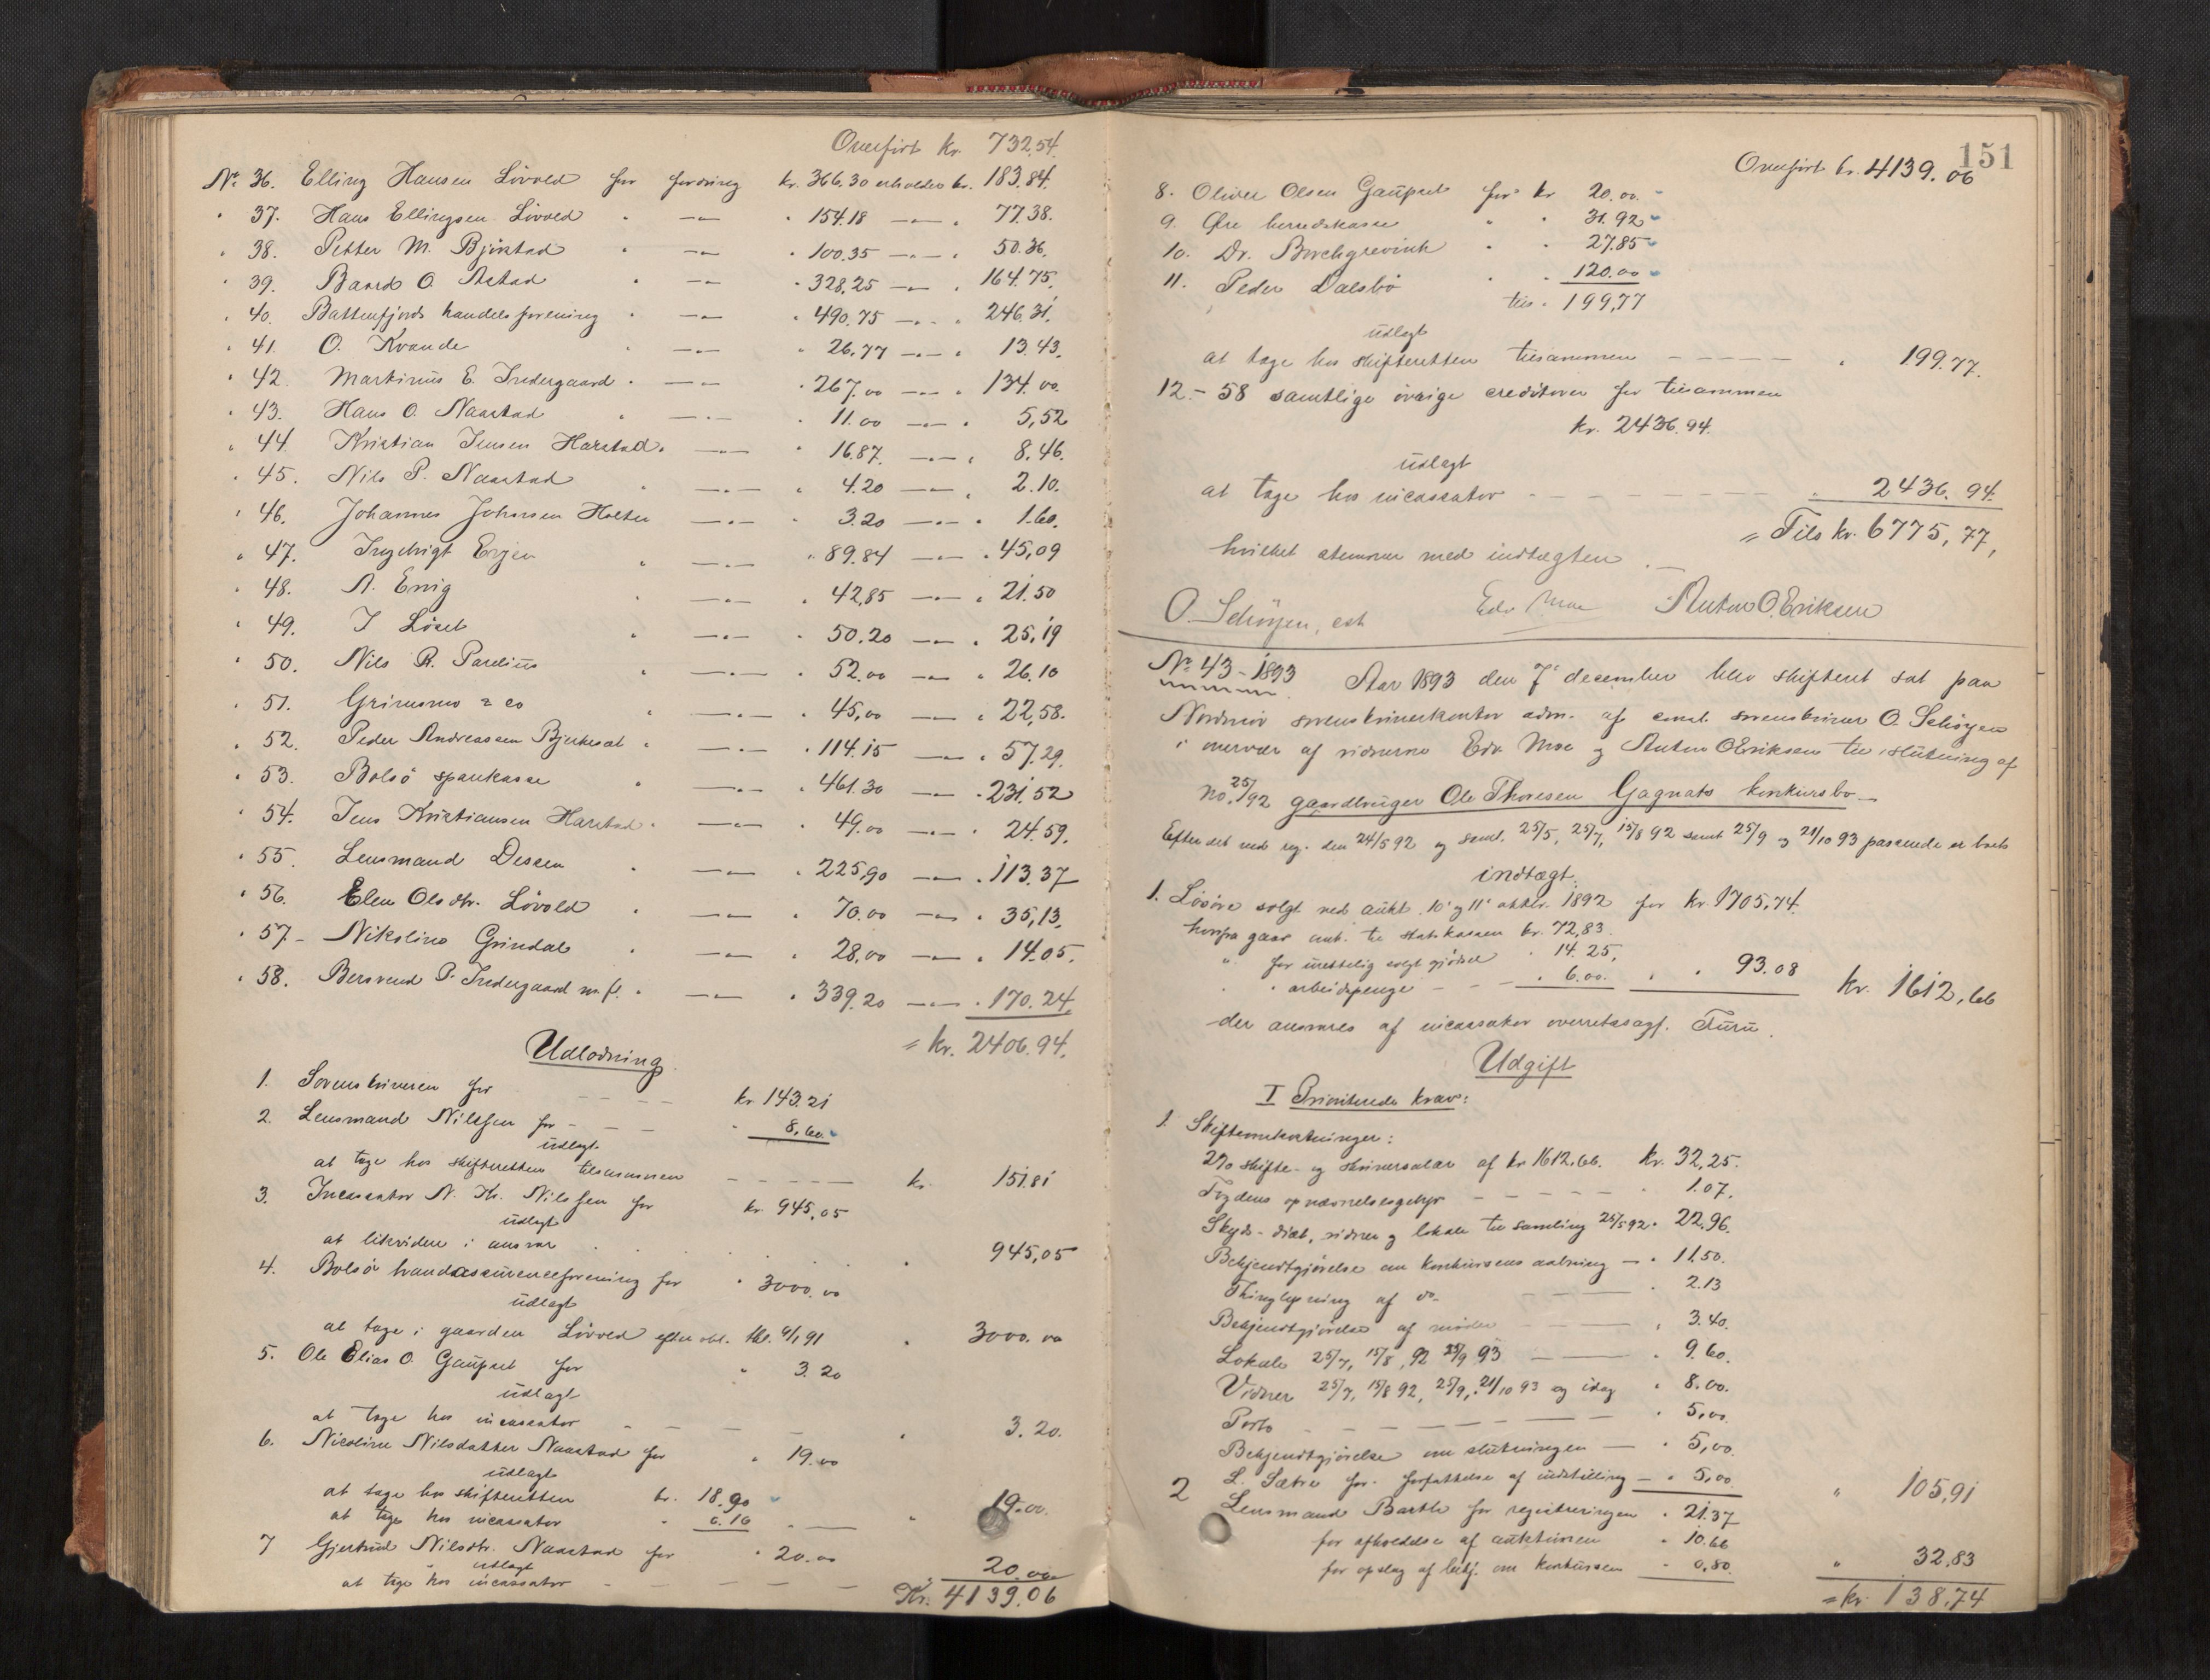 Overført kr. 732.54.
No 36. Elling Hansen Lövold for fordring kr. 366.30 erholder kr. 183.84.
" 37. Hans Ellingsen Lövold " —"— " 154.18 —"— " 77.38.
" 38. Petter M. Bjerstad " —"— " 100.35 —"— " 50.36.
" 39. Baard O. Aastad " —"— " 328.25 —"— " 164.75.
" 40. Battenfjords handelsforening " —"— " 490.75 —"— " 246.31.
" 41. O. Kvande " —"— " 26.77 —"— " 13.43.
" 42. Martinus E. Indergaard " —"— " 267.00 —"— " 134.00.
" 43. Hans O. Naastad " —"— " 11.00 —"— " 5,52
" 44. Kristian Jensen Harstad " —"— " 16.87. —"— " 8.46.
" 45. Nils P. Naastad " —"— " 4.20 —"— " 2.10.
" 46. Johannes Johnsen Holten —"— " 3.20 —"— " 1.60.
" 47. Ingebrigt " —"— " 89.84 —"— " 45,09
" 48. A. " —"— " 42,85 —"— " 21.50
" 49. J Löset " —"— " 50.20 —"— " 25,19
" 50. Nils R. Parelius " —"— " 52.00 —"— " 26.10
" 51. Grimsmo & co " —"— " 45,00 —"— " 22,58.
" 52. Peder Andreassen Bjerkeset " —"— " 114.15 —"— " 57.29.
" 53. Bolsö sparekasse " —"— " 461.30 —"— " 231.52
" 54. Jens Kristiansen Harstad " —"— " 49.00 —"— " 24.59.
" 55. Lensmand Dessen " —"— " 225,90 —"— " 113.37
" 56. Elen Olsdtr. Lövold " —"— " 70.00 —"— " 35,13.
" 57 - Nikoline Grindal " —"— " 28,00 —"— " 14.05.
" 58. Bersvend P. Indergaard m. fl. " —"— " 339.20 —"— " 170.24.
= kr. 2406.94.
Udlodning
1. Sorenskriveren for - - - - kr 143.21
2. Lensmand Nilssen for - - - " 8.60.
udlagt
at tage hos skifteretten tilsammen - - - - - kr. 151.81
3. Incassator N. Kr. Nilssen for kr. 945,05
udlagt
at likvidere i ansvar " 945,05
4. Bolsö brandassuranceforening for " 3000.00
udlagt
at tage i gaarden Lövold efter obl. thl. 9/1 91 " 3000.00
5. Ole Elias O. Gaupset for " 3.20
udlagt
at tage hos incassator - - - - " 3.20.
6. Nicoline Nilsdatter Naastad for " 19.00
udlagt
at tage hos skifteretten kr. 18.90
at tage hos incassator " 0.10 " — " 19.00.
7 Gjertrud Nilsdtr. Naastad for " 20.00
udlagt
at tage hos incassator - - - - - " 20.00
Kr. 4139.06
151
Overført kr. 4139.06
8. Oliver Olsen Gaupset for kr 20.00.
9. Øre herredskasse " " 31.92
10. Dr. Borchgrevink " " 27.85
11. Peder Dalsbö " " 120.00
tils. 199,77
udlagt
at tage hos skifteretten tilsammen - - - - - " 199.77.
12. - 58 samtlige övrige creditorer for tilsammen
kr. 2436.94.
udlagt
at tage hos incassator - - - - - - - " 2436.94.
= Tils kr. 6775,77,
hvilket stemmer med indtægten. —
O. Schöyen, cst Edv Moe Anton O. Eriksen
No 43 - 1893 Aar 1893 den 7' december blev skifteret sat paa
Nordmör sorenskriverkontor adm. af const. sorenskriver O. Schöyen
i overvær af vidnerne Edv. Moe og Anton O Eriksen til slutning af
No. 25/92 gaardbruger Ole Thoresen Gagnats konkursbo —
Efter det ved reg. den 24/5 92 og saml. 25/5, 25/7, 15/8 92 samt 25/9 og 21/10 93 passerede er boets
indtægt.
1. Lösöre solgt ved aukt. 10' og 11' oktbr. 1892 for kr. 1705,74.
herfra gaar aukt. til statskassen kr. 72,83.
" for solgt gjödsel " 14.25.
" " arbeidspenge - - - " 6.00. " " 93.08 kr. 1612,66
der ansvares af incassator overretssagf. Furu.
Udgift
I Prioriterede krav:
1. Skifteomkostninger:
2% skifte- og skriversalær af kr 1612.66. kr. 32,25.
Fogdens opnævnelsesgebyr - - - - - " 1.07.
Skyds- diæt, vidner og lokale til samling 25/5 92 " 22.96.
Bekjendtgjörelse om konkursens aabning — " 11.50.
Thinglysning af do. — " 2.13
Bekjendtgjörelse af möder — " 3.40.
Lokale 25/7, 15/8, 92 25/9 93 — " 9.60.
Vidner 25/7, 15/8 92, 25/9, 21/10 93 og idag " 8.00.
Porto - - - - - - - " 5,00.
Bekjendtgjörelse om slutningen — " 5,00.
L. Sætre for forfattelse af indstilling — " 5.00 " 105,91
2 Lensmand Barth for registreringen " 21.37
for afholdelse af auktionen " 10.66
for opslag af bekj. om konkursen " 0,80. " 32.83
= kr. 138,74